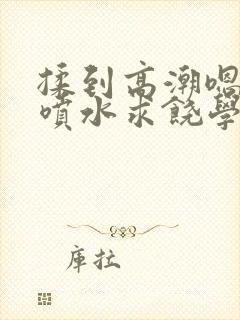 揉到高潮嗯
噴水求饒學
庫拉